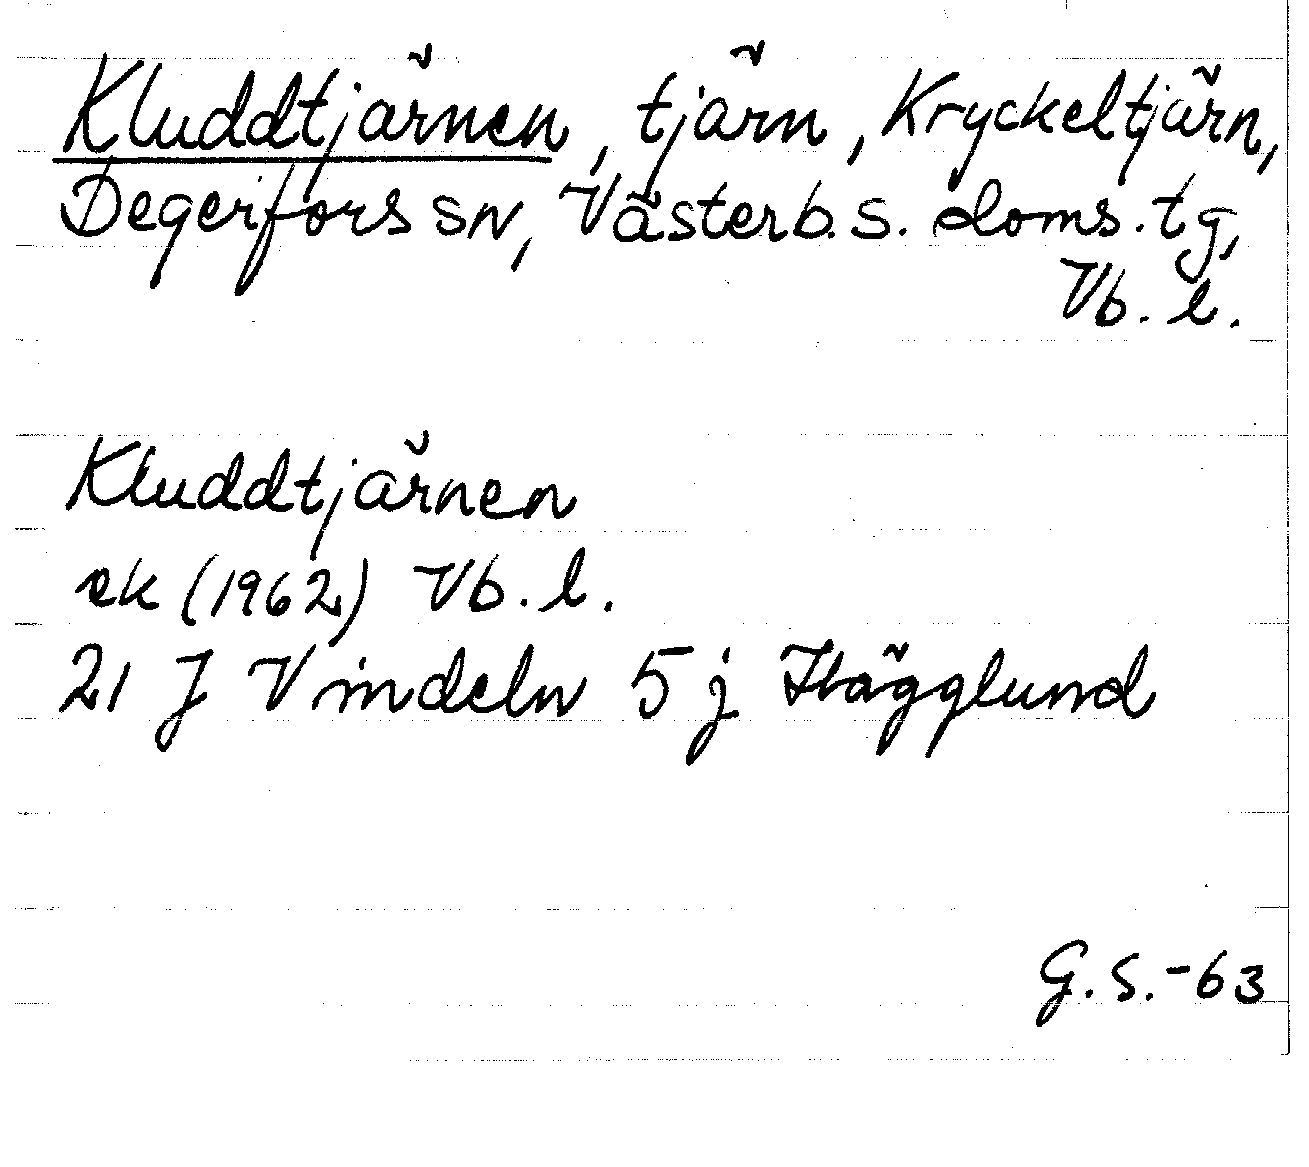 Kluddtjärnen, tjärn, Kryckeltjärn,
Degerfors sn, Västerb. s. doms. tg,
Vb. l.
Kluddtjärnen
ek (1962) Vb. l.
21 J Vindeln 5 j Hägglund
G. S. -63